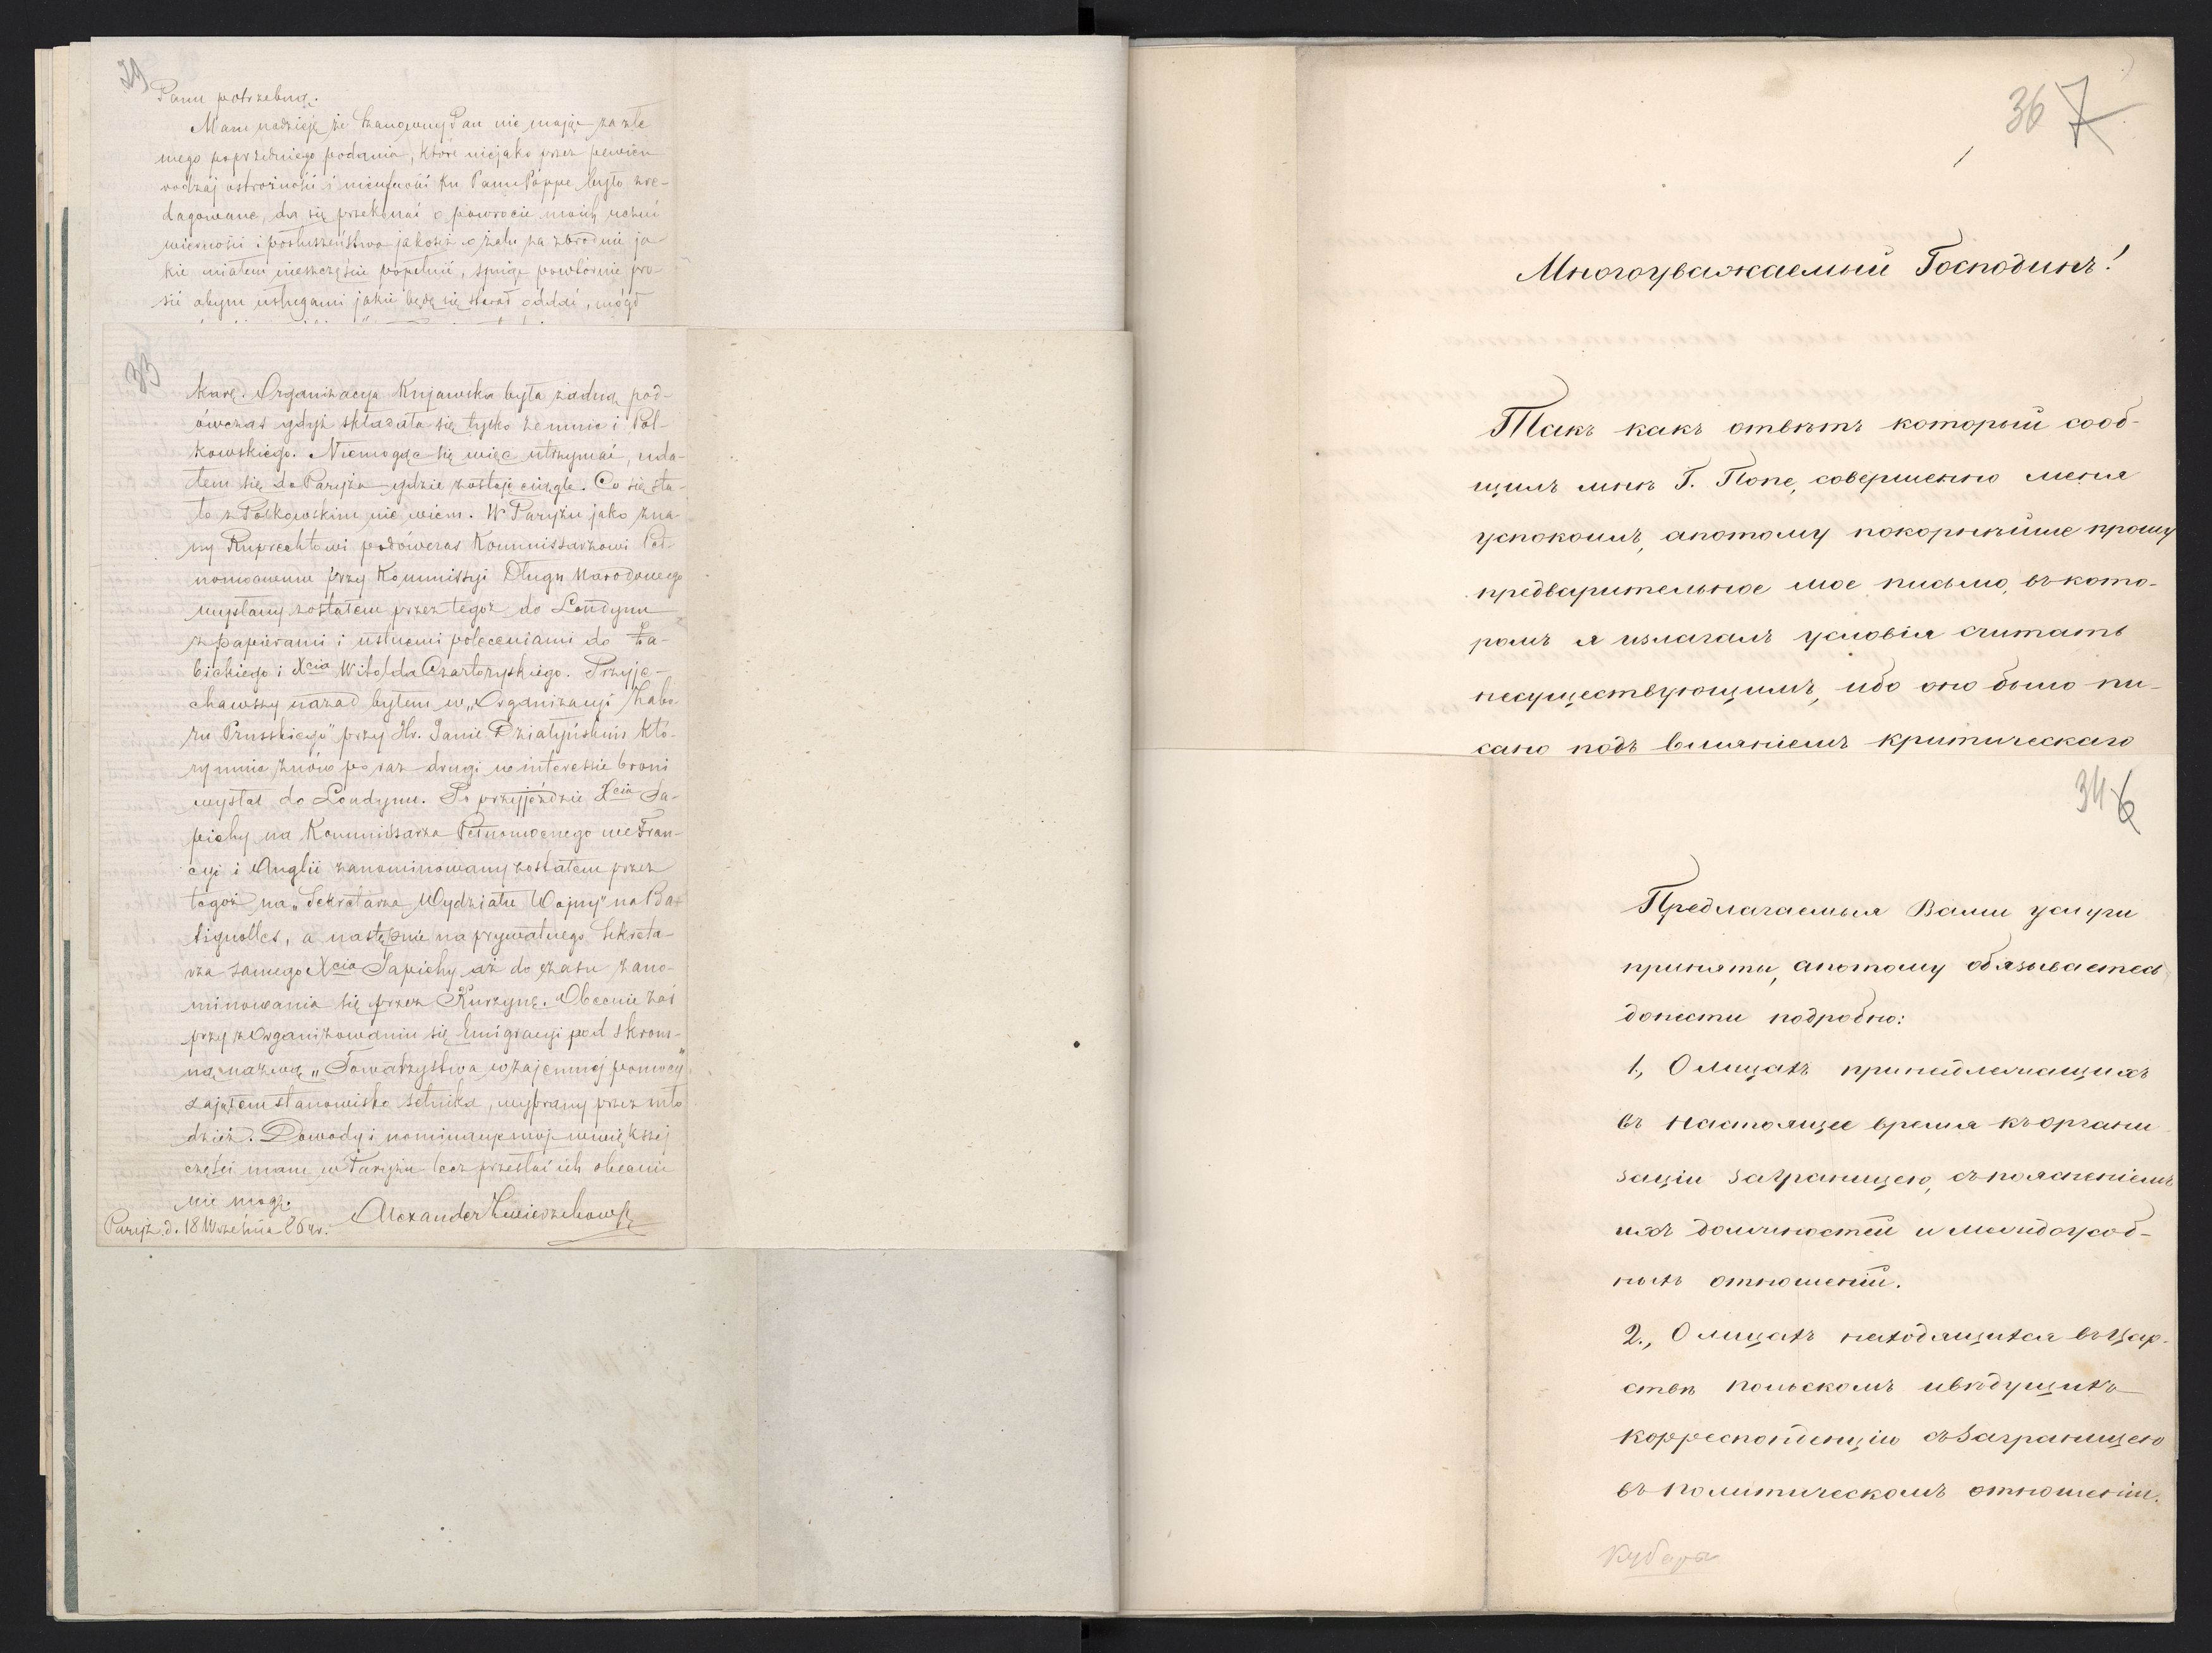 29
Panu potrzebną.
Mam nadzieję że Szanowny Pan nie mając za złe
mego poprzedniego podania, które niejako przez pewien
rodzaj ostrożności i nieufności ku Panu Poppe było zre-
dagowane, da się przekonać o powrocie moich uczuć
wierności i posłuszeństwa jakoteż o żalu za zbrodnie ja
kie miałem nieszczęście popełnić, śmię powtórnie pro-
sić abym usługami jakie będę się starał oddać, mógł
33
karę. Organizacya Kujawska była żadną pod-
ówczas gdyż składała się tylko zemnie i Pol-
kowskiego. Niemogąc się więc utrzymać, uda-
łem się do Paryża gdzie zostaję ciągle. Co się sta-
ło z Polkowskim nie wiem. W Paryżu jako zna-
ny Ruprechtowi podówczas Kommissarzowi Peł-
nomocnemu przy Kommissyi Długu Narodowego
wysłany zostałem przez tegoż do Londynu
z papierami i ustnemi poleceniami do Ża-
bickiego i Xcia Witolda Czartoryskiego. Przyje-
chawszy nazad byłem w „Organizacyi Zabo-
ru Pruskiego" przy Hr. Janie Działyńskim któ-
ry mnie znów po raz drugi w interessie broni
wysłał do Londynu. Po przyjeździe Xcia Sa-
piehy na Kommissarza Pełnomocnego we Fran-
cyi i Anglii zanominowany zostałem przez
tegoż na „Sekretarza Wydziału Wojny" na Ba-
tignolles, a następnie na prywatnego Sekreta-
rza samego Xcia Sapiehy aż do czasu zano-
minowania się przez Kurzynę. Obecnie zaś
przy zorganizowaniu się Emigracyi pod skrom-
ną nazwą „Towarzystwa wzajemnej pomocy"
zająłem stanowisko setnika, wybrany przez mło
dzież. Dowody i nominacye moje w większej
części mam w Paryżu lecz przesłać ich obecnie
nie mogę.
Paryż d. 18 Września 864r. Alexander
36 7
Многоуважаемый Господинъ!
Такъ какъ отвѣтъ который сооб-
щилъ мнѣ Г. Попе, совершенно меня
успокоилъ, апотому покорнѣйше прошу
предварительное мое письмо, въ кото-
ромъ я излагалъ условія считать
несуществующимъ, ибо оно было пи-
сано подъ вліяніемъ критическаго
34 6
Предлагаемыя Вами услуги
приняты, апотому обязываетесь
донести подробно:
1, О лицахъ принадлежащихъ
въ настоящее время къ органи
заціи заграницею, съ поясненіемъ
ихъ должностей и междоусоб-
ныхъ отношеній.
2., О лицахъ находящихся въ Цар-
ствѣ Польскомъ иведущихъ
корреспонденцію съ заграницею
въ политическомъ отношеніи.